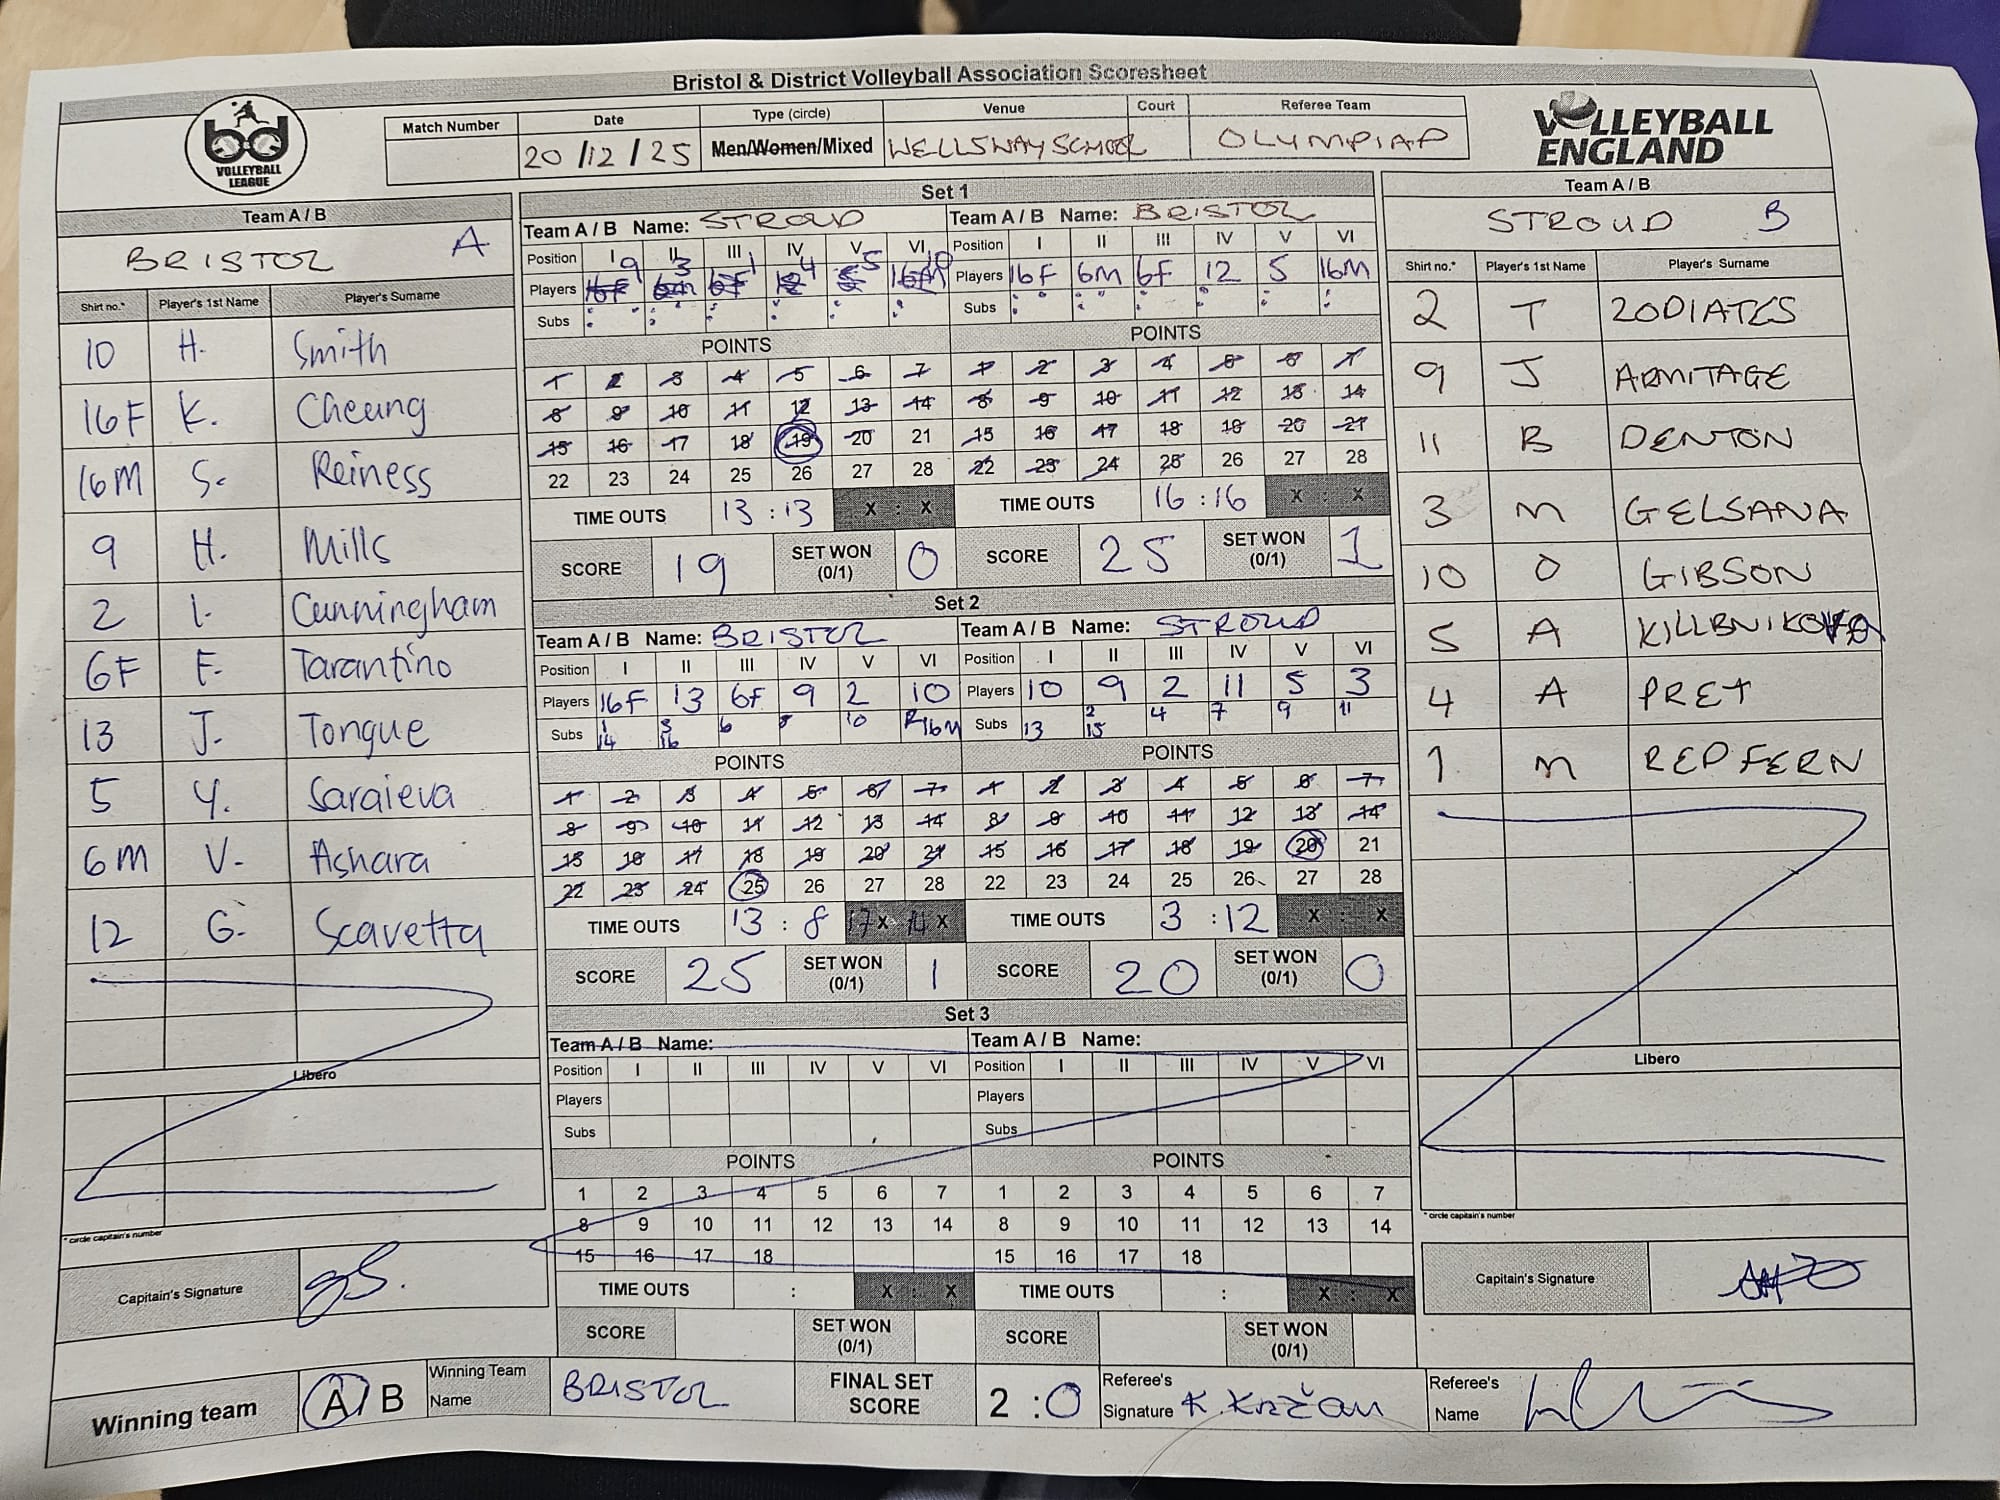 Bristol & District Volleyball Association Scoresheet
bd
VOLLEYBALL
LEAGUE
Match Number
Date
Type (circle)
Venue
Court
Referee Team
20/12/25
Men/Women/Mixed
WELLSWAY SCHOOL
OLYMPIAD
VOLLEYBALL
ENGLAND
Team A / B
BRISTOL A
Shirt no.* Player's 1st Name Player's Surname
10 H. Smith
16F K. Cheung
16M S. Reiness
9 H. Mills
2 I. Cunningham
6F F. Tarantino
13 J. Tongue
5 Y. Saraieva
6M V. Ashara
12 G. Scavetta
Libero
* circle captain's number
Capitain's Signature
Set 1
Team A / B Name: STROUD
Position I II III IV V VI
9 3 1 4 5 10
Players 16F 6m 6F 12 5 16M
Subs : : : : : :
POINTS
1 2 3 4 5 6 7
8 9 10 11 12 13 14
15 16 17 18 19 20 21
22 23 24 25 26 27 28
TIME OUTS 13 : 13 X : X
SCORE 19 SET WON (0/1) 0
Team A / B Name: BRISTOL
Position I II III IV V VI
Players 16F 6M 6F 12 5 16M
Subs : : : : : :
POINTS
1 2 3 4 5 6 7
8 9 10 11 12 13 14
15 16 17 18 19 20 21
22 23 24 25 26 27 28
TIME OUTS 16 : 16 X : X
SCORE 25 SET WON (0/1) 1
Set 2
Team A / B Name: BRISTOL
Position I II III IV V VI
Players 16F 13 6F 9 2 10
Subs 1 3 6 8 10 R16M
14 16
POINTS
1 2 3 4 5 6 7
8 9 10 11 12 13 14
15 16 17 18 19 20 21
22 23 24 25 26 27 28
TIME OUTS 13 : 8 17 X X
SCORE 25 SET WON (0/1) 1
Team A / B Name: STROUD
Position I II III IV V VI
Players 10 9 2 11 5 3
Subs 13 2 4 7 9 11
15
POINTS
1 2 3 4 5 6 7
8 9 10 11 12 13 14
15 16 17 18 19 20 21
22 23 24 25 26 27 28
TIME OUTS 3 : 12 X : X
SCORE 20 SET WON (0/1) 0
Set 3
Team A / B Name:
Position I II III IV V VI
Players
Subs
POINTS
1 2 3 4 5 6 7
8 9 10 11 12 13 14
15 16 17 18
TIME OUTS : X : X
SCORE SET WON (0/1)
Team A / B Name:
Position I II III IV V VI
Players
Subs
POINTS
1 2 3 4 5 6 7
8 9 10 11 12 13 14
15 16 17 18
TIME OUTS : X : X
SCORE SET WON (0/1)
Team A / B
STROUD B
Shirt no.* Player's 1st Name Player's Surname
2 T ZODIATES
9 J ARMITAGE
11 B DENTON
3 M GELSANA
10 O GIBSON
5 A KILLBNIKOVA
4 A PRET
1 M REDFERN
Libero
* circle captain's number
Capitain's Signature
Winning team A / B
Winning Team Name BRISTOL
FINAL SET SCORE 2 : 0
Referee's Signature K. Križan
Referee's Name